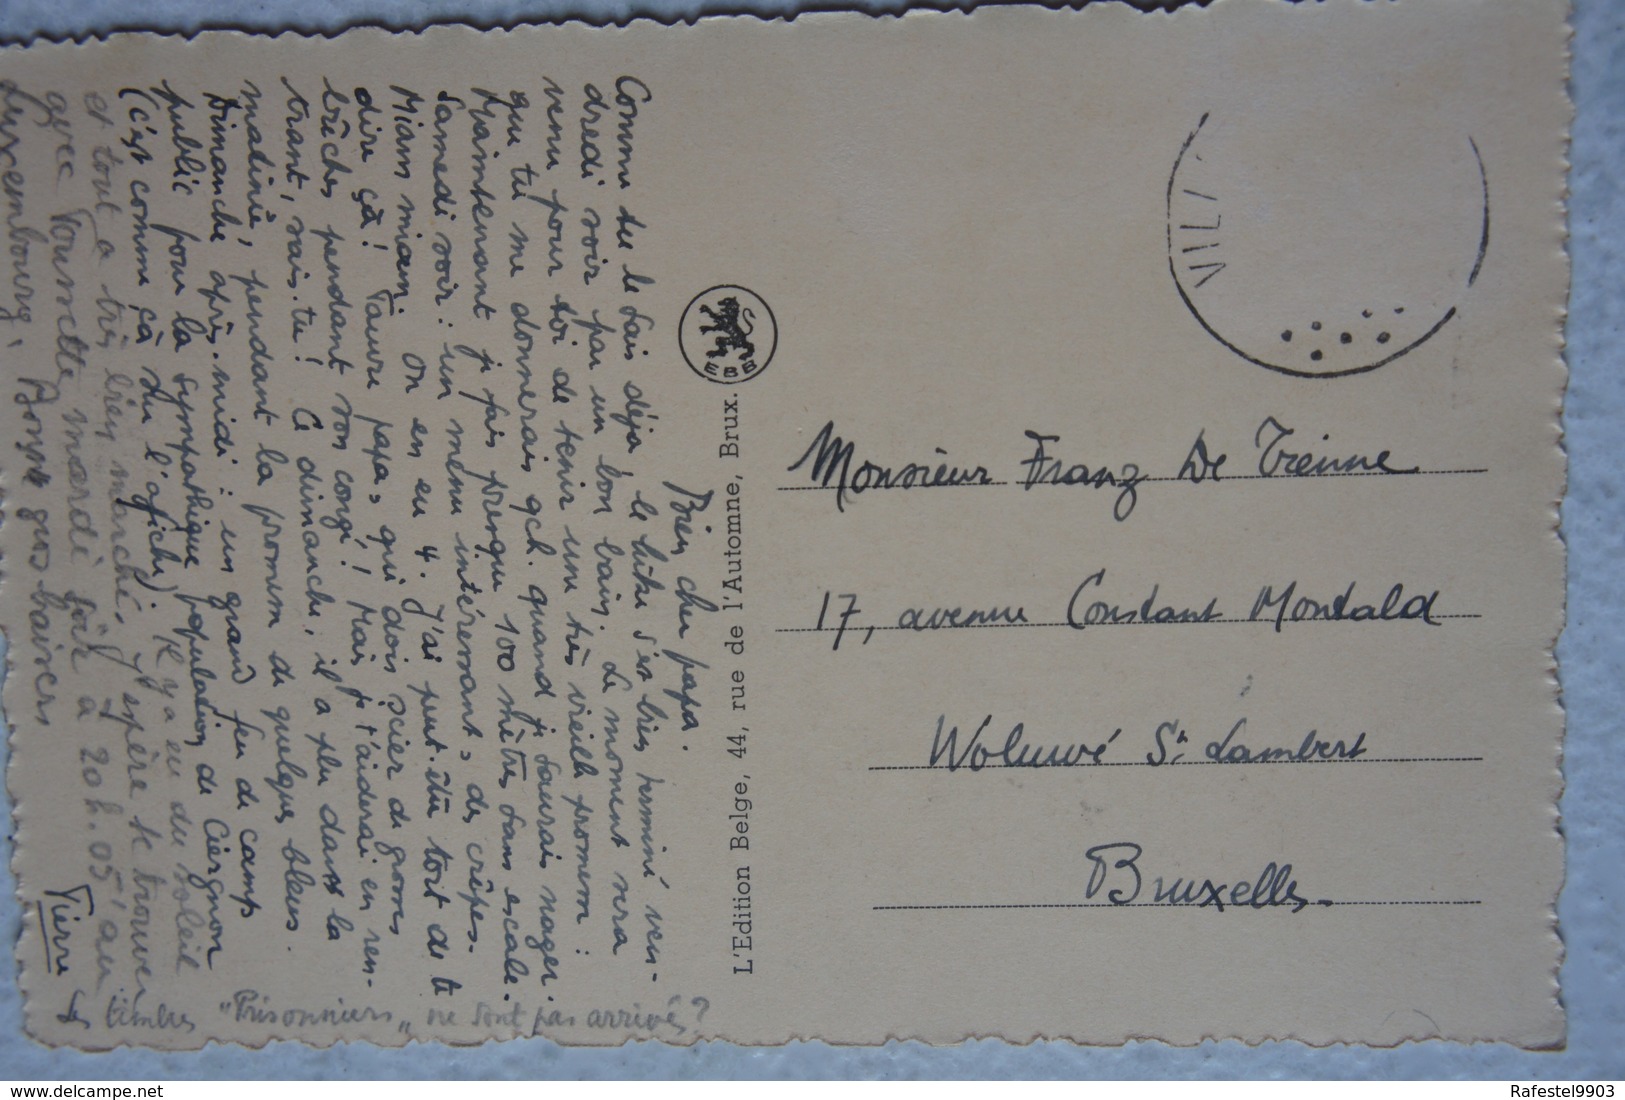 Bien cher papa.
Comme tu le sais déja, le hike s'est bien terminé ven-
dredi soir par un bon bain. Le moment sera
venu pour toi de tenir une très vieille promesse :
que tu me donnerais qch. quand je saurais nager.
Maintenant je fais presque 100 mètres sans escale.
Samedi soir : un menu intéressant, des crêpes.
Miam miam on en eu 4. J'ai peut-être tort de te
dire çà! Pauvre papa, qui dois scier de grosses
bûches pendant son congé! Mais je t'aiderai en ren-
trant, sais-tu! Ce dimanche, il a plu dans la
matinée, pendant la promesse de quelques bleus.
Dimanche après-midi : un grand feu de camp
public pour la sympathique population de Ciergnon
(c'est comme çà sur l'affiche). Il y a eu du soleil
et tout a très bien marché. J'espère te trouver
avec Poumette mardi soir à 20 h. 05 au
Luxembourg. Bons gros baisers
Pierre
Les timbres "Prisonniers" ne sont pas arrivés?
EBB
L'Edition Belge, 44, rue de l'Automne, Brux.
Monsieur Franz De Vrienne
17, avenue Constant Montald
Woluwé St. Lambert
Bruxelles.
Rafestel9903